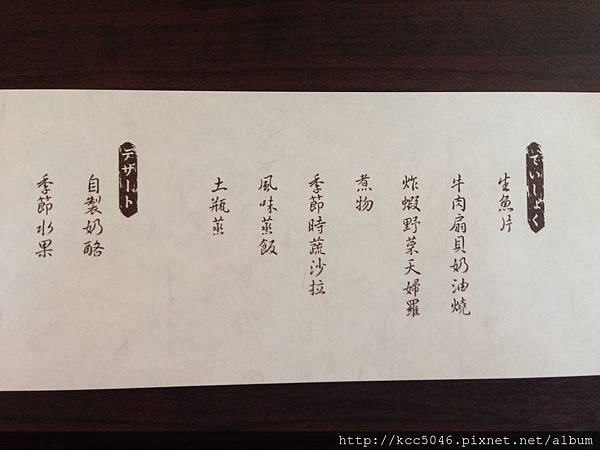 ていしょく
生魚片
牛肉扇貝奶油燒
炸蝦野菜天婦羅
煮物
季節時蔬沙拉
風味蒸飯
土瓶蒸
デザート
自製奶酪
季節水果
http://kcc5046.pixnet.net/album